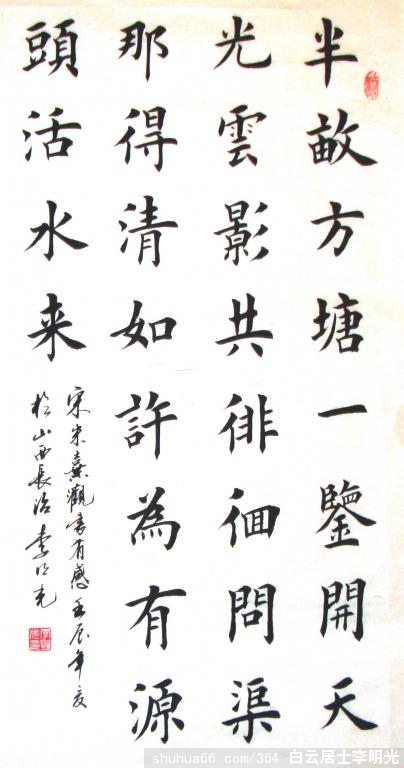 半畝方塘一鑒開天
光雲影共徘徊問渠
那得清如許為有源
頭活水来
宋朱熹觀書有感壬辰年夏
於山西長治李明光
shuhua66.com/364 白云居士李明光